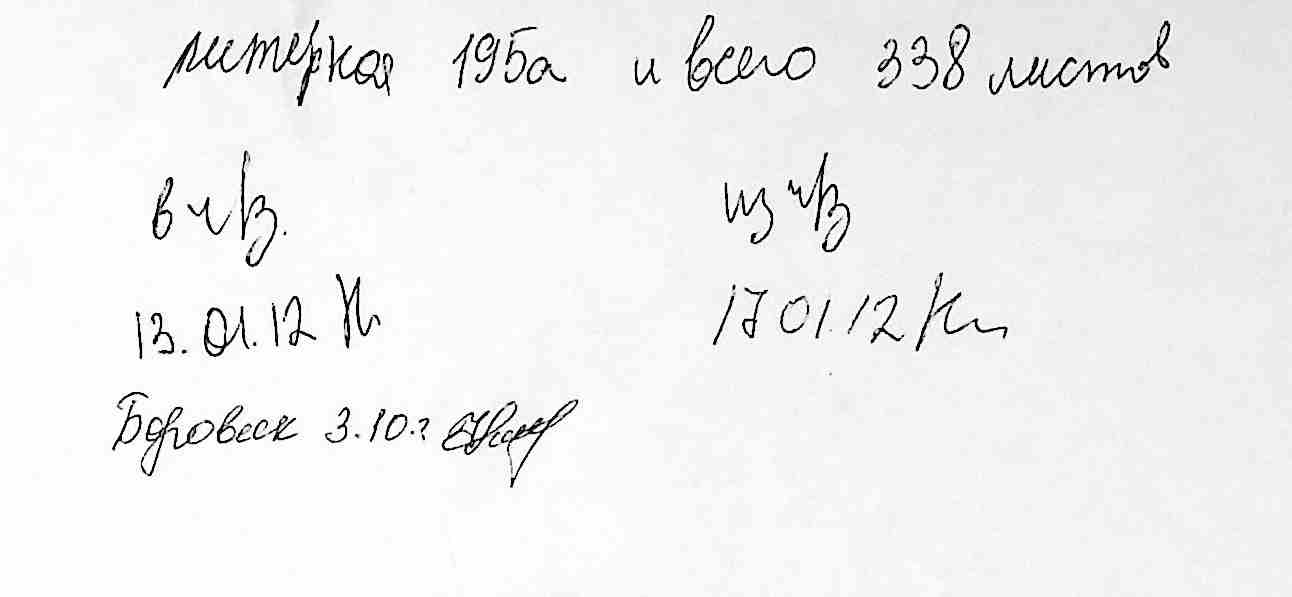 литерная 195а и всего 338 листов
в ч/з. из ч/з
13.01.12 17.01.12
Боровск 3.10.